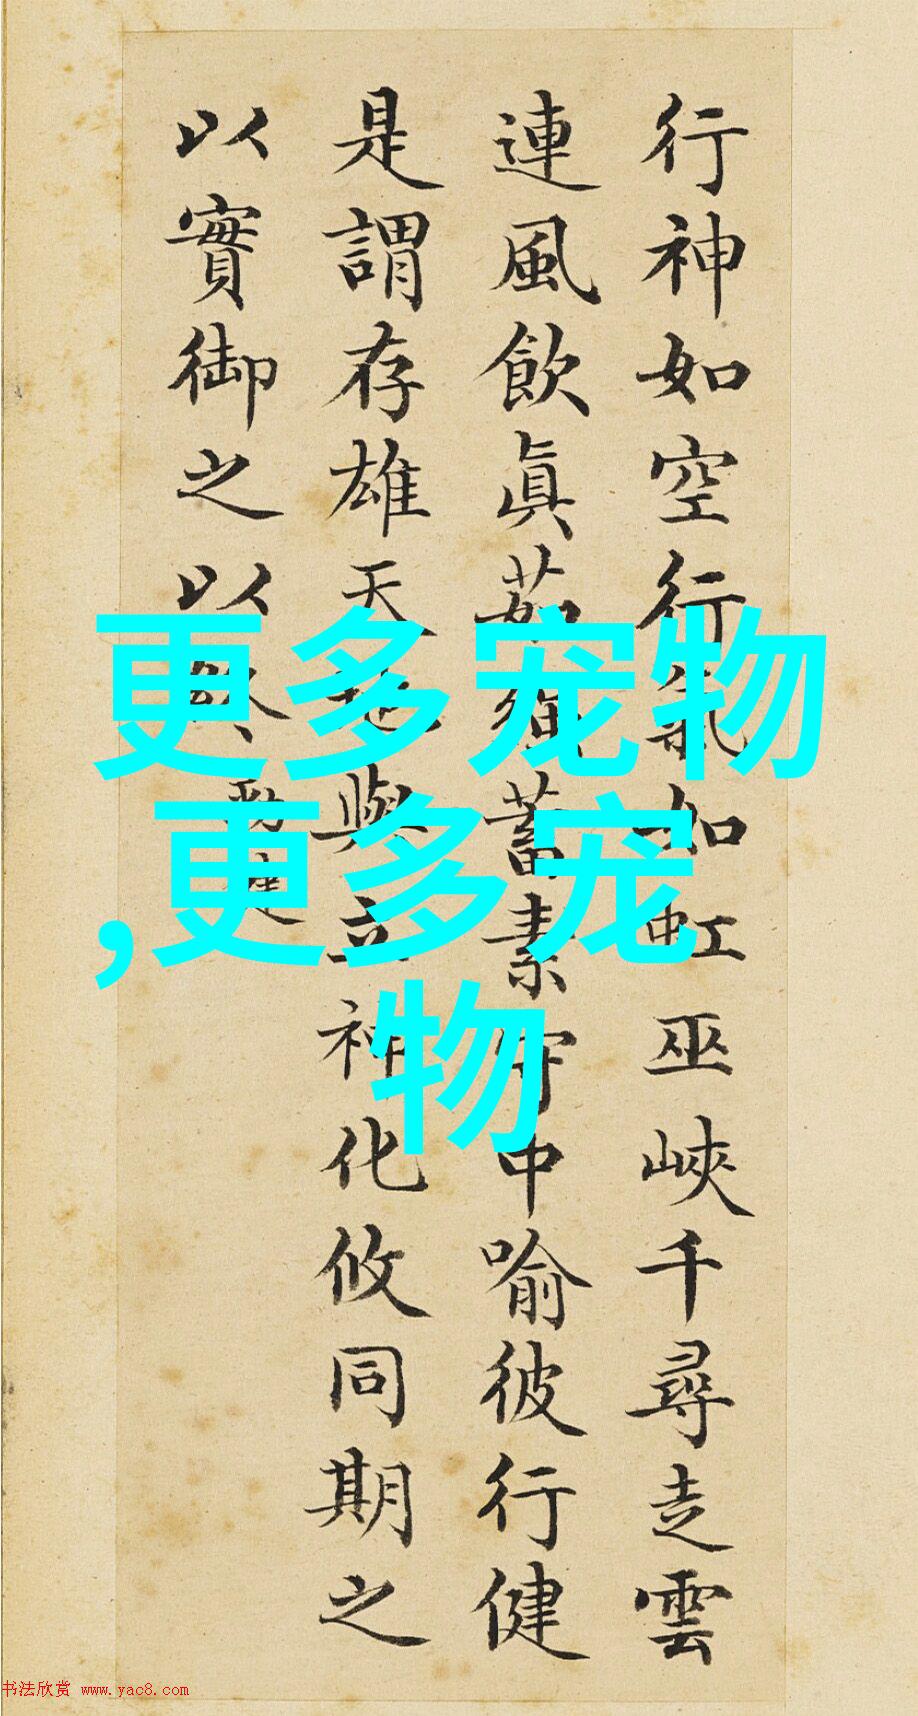 行神如空行氣如虹巫峽千尋走雲
連風飲眞茹強蓄素守中喻彼行健
是謂存雄天地與立神化攸同期之
以實御之以終勁健
更多宠物
,更多宠
物
书法欣赏 www.yac8.com